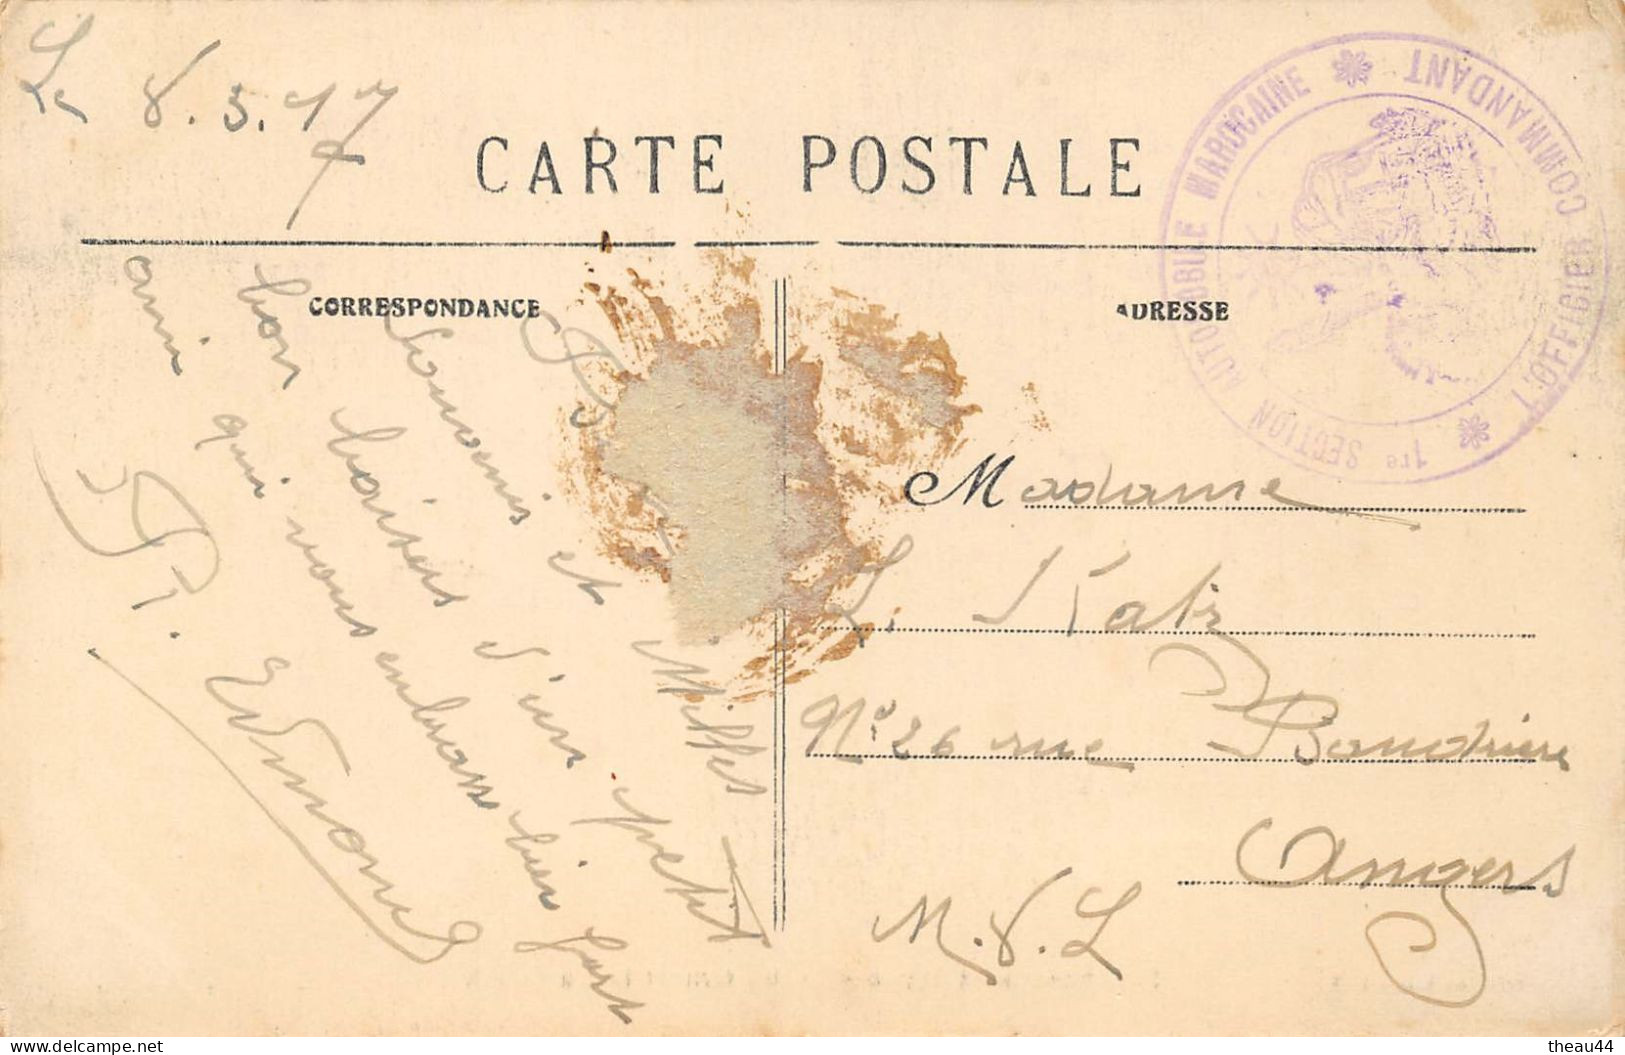 Le 8.5.17
CARTE POSTALE
CORRESPONDANCE
ADRESSE
1re SECTION AUTOMOBILE MAROCAINE
L'OFFICIER COMMANDANT
Souvenirs et Milles
bon baisers d'un petit
ami qui vous embrasse bien fort
Edmond
Madame
L. Katz
N° 26 rue Baudrière
Angers
M.&.L
delcampe.net
theau44